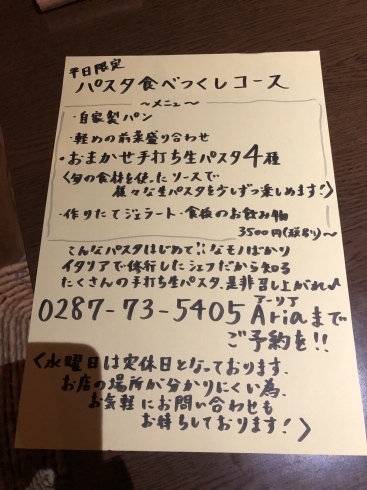 平日限定
パスタ食べつくしコース
～メニュー～
・自家製パン
・軽めの前菜盛り合わせ
・おまかせ手打ち生パスタ4種
〈旬の食材を使ったソースで
様々な生パスタを少しずつ楽しめます!〉
・作りたてジェラート・食後のお飲み物
3500円(税別)～
こんなパスタはじめて!!なモノばかり
イタリアで修行したシェフだから知る
たくさんの手打ち生パスタ、是非召し上がれ♪
アーリア
0287-73-5405 Ariaまで
ご予約を!!
〈水曜日は定休日となっております。
お店の場所が分かりにくい為、
お気軽にお問い合わせも
お待ちしております!〉